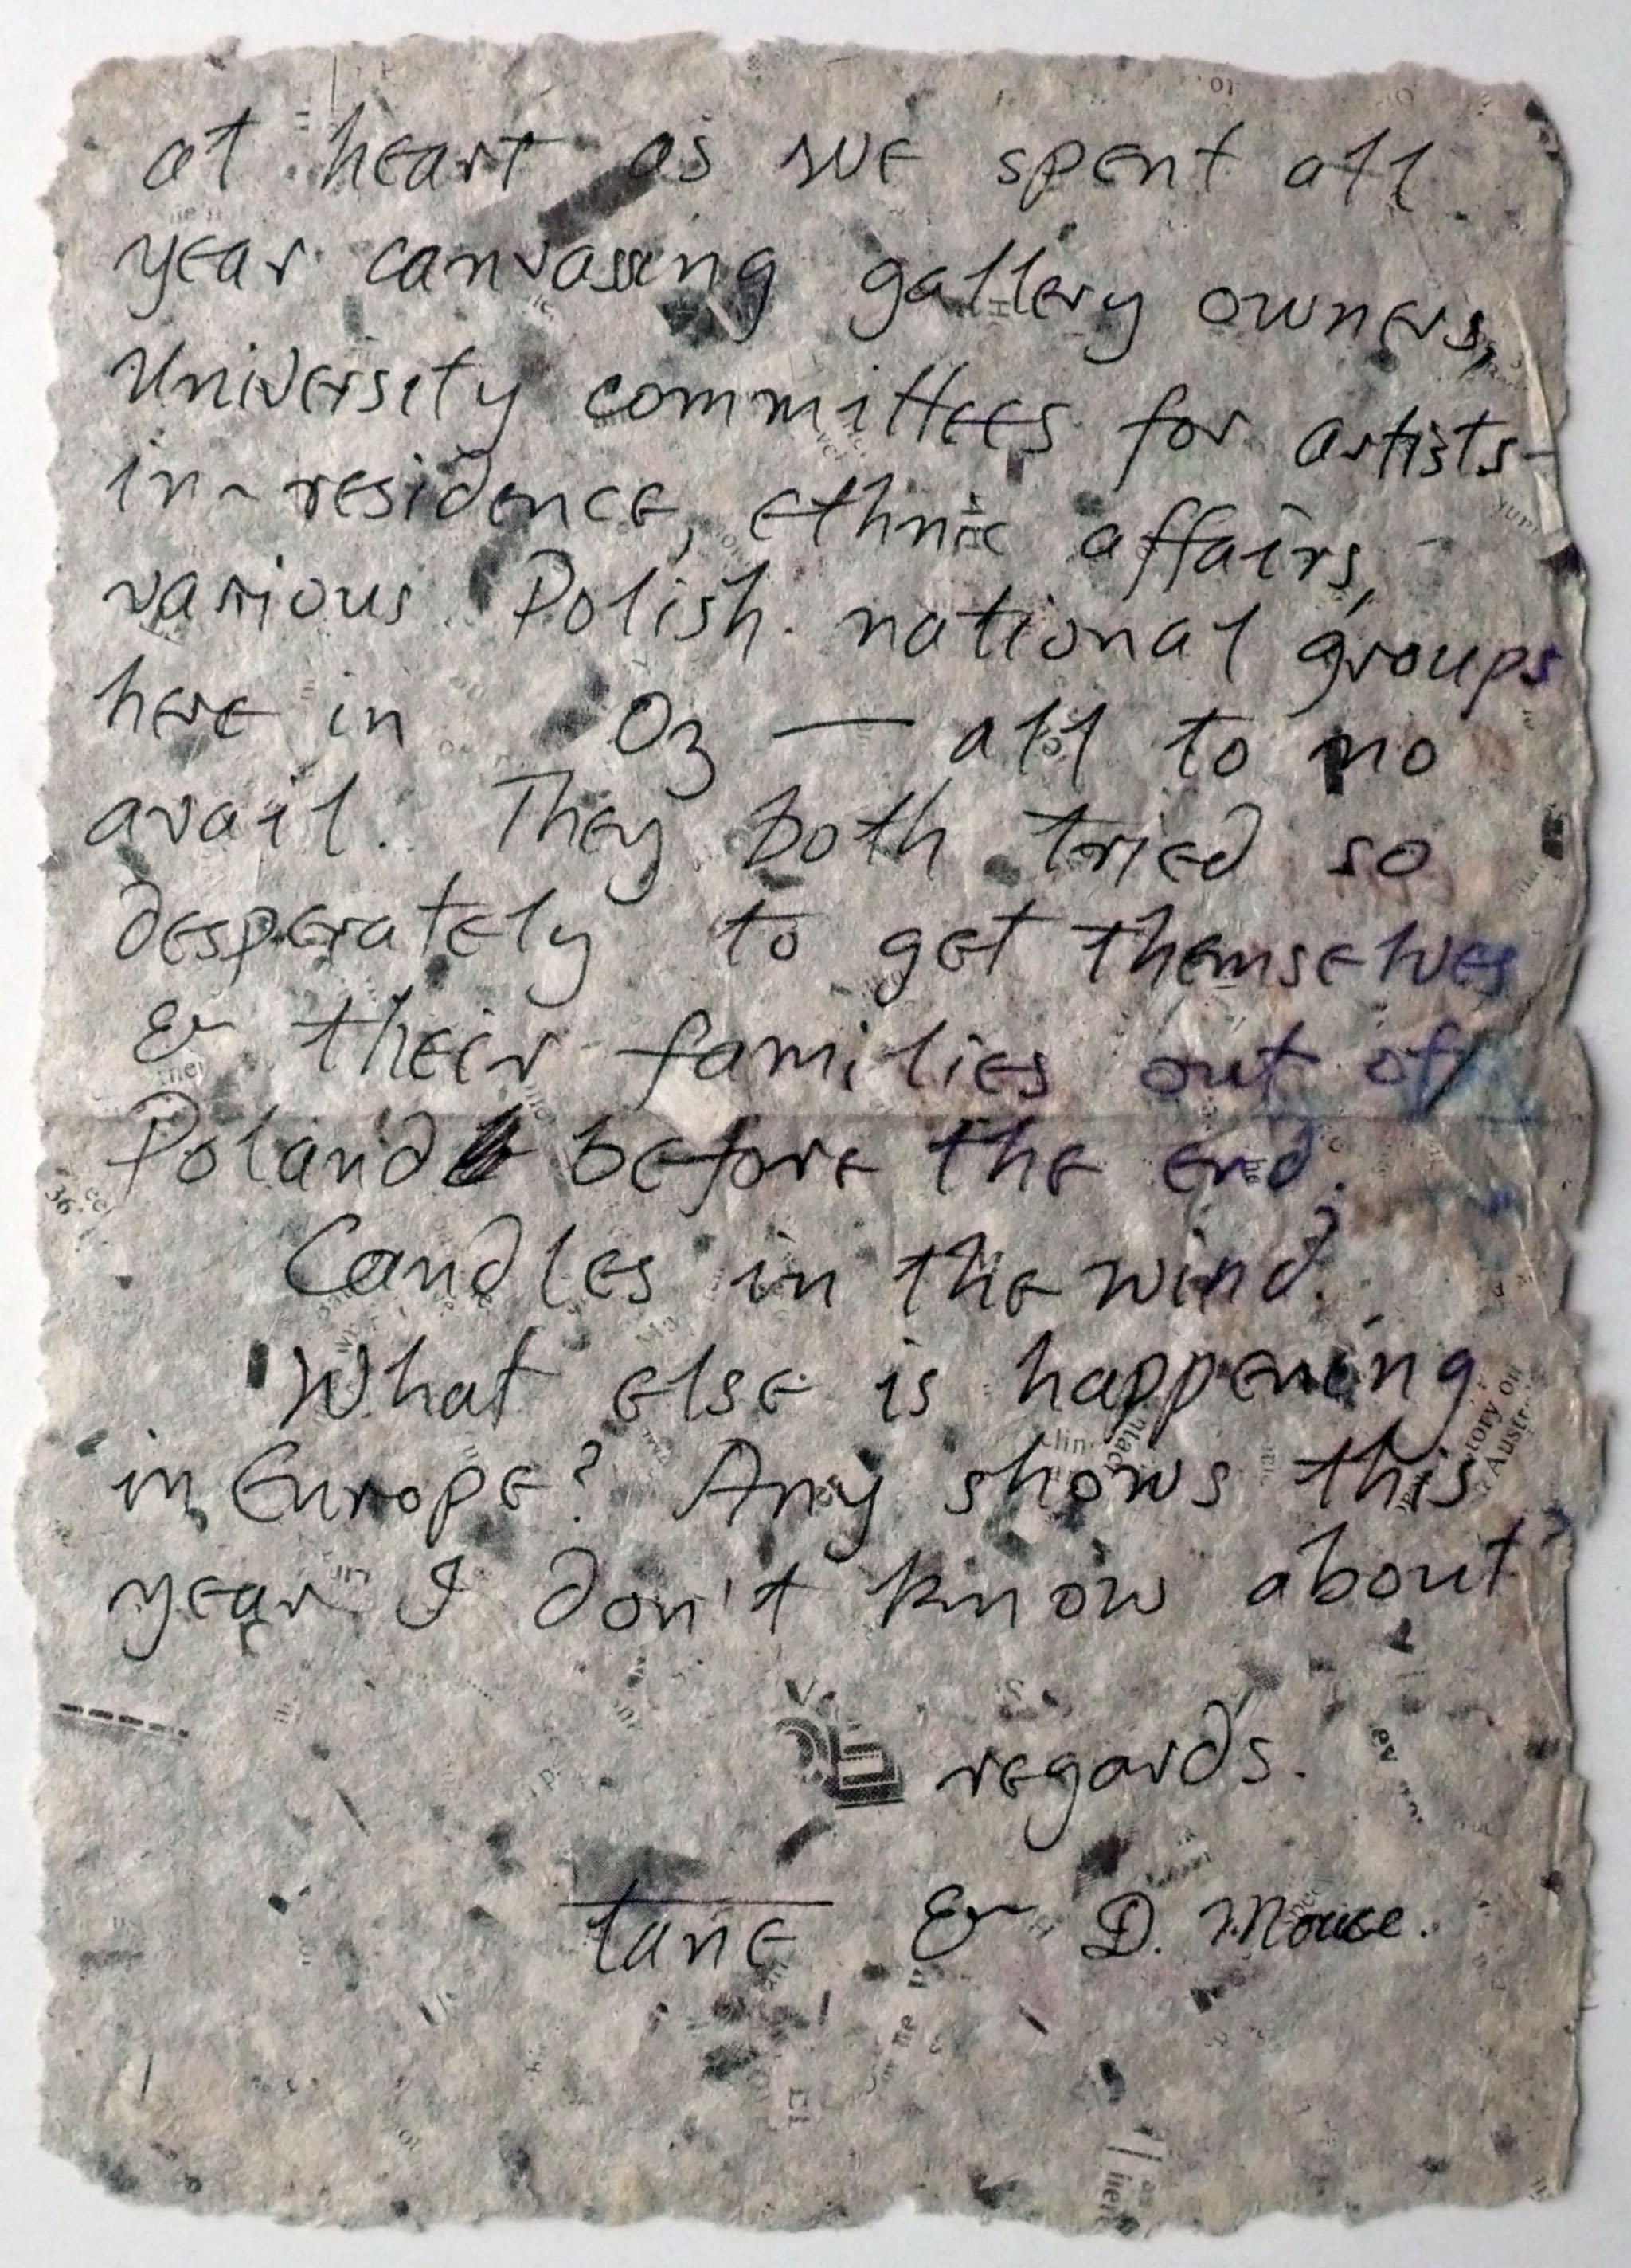 at heart as we spent all
year canvassing gallery owners,
University committees for artists-
in-residence, ethnic affairs,
various Polish national groups
here in Oz — all to no
avail. They both tried so
desperately to get themselves
& their families out of
Poland before the end.
Candles in the wind.
What else is happening
in Europe? Any shows this
year I don't know about?
regards.
tane & D. Mouse.